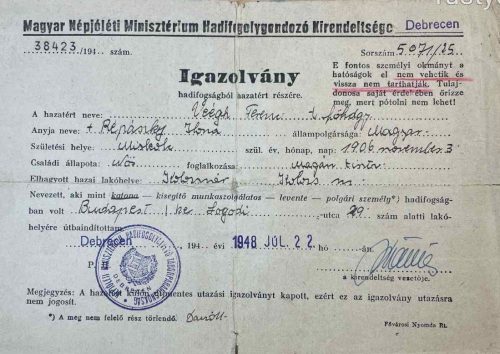 Magyar Népjóléti Minisztérium Hadifogolygondozó Kirendeltsége Debrecen
38423/194 . szám.
Sorszám 5.071/25
E fontos személyi okmányt a
hatóságok el nem vehetik és
vissza nem tarthatják. Tulaj-
donosa saját érdekében őrizze
meg, mert pótolni nem lehet!
Igazolvány
hadifogságból hazatért részére.
A hazatért neve Végh Ferenc
Anyja neve: + Répánszky Ilona állampolgársága: Magyar
Születési helye Miskolc szül. év, hónap, nap: 1906. november 3
Családi állapota: Nős foglalkozása: Magán tisztv
Elhagyott hazai lakóhelye:
Nevezett, aki mint katona — kisegítő munkaszolgálatos — levente — polgári személy*) hadifogság-
ban volt Budapest I. ker Logodi -utca 29 szám alatti lakó-
helyére útbaindíttatott.
Debrecen 194 évi 1948 JUL. 22. hó -án.
P. H.
a kirendeltség vezetője.
Megjegyzés: A hazatért díjmentes utazási igazolványt kapott, ezért ez az igazolvány utazásra
nem jogosít.
*) A meg nem felelő rész törlendő.
Fővárosi Nyomda Rt.